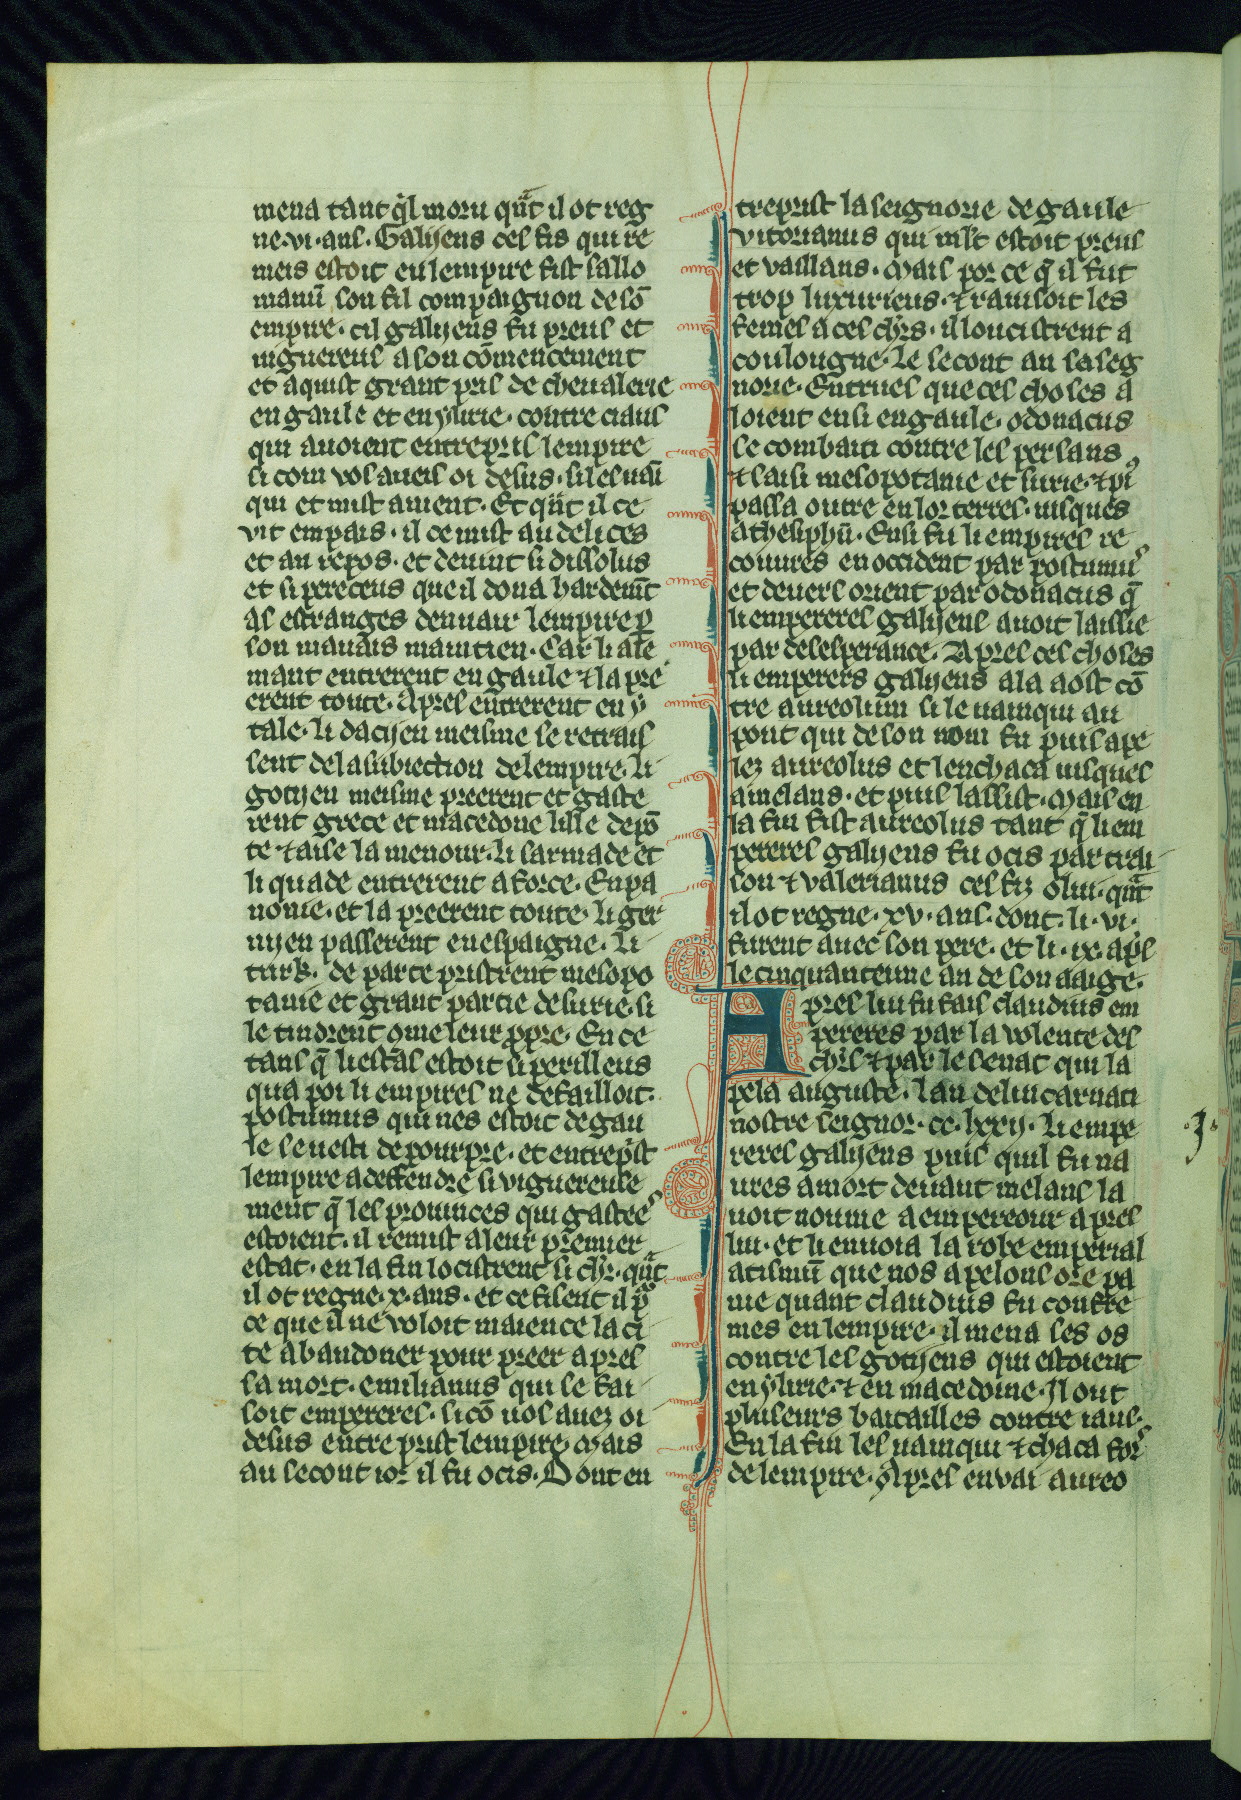 mena tant q̄l moru qu̅t il ot reg
ne·vi·ans·Galyens ces fis qui re
meis estoit en lempire fist sallo
manū son fil compaignon de sō
empire· cil galyens fu preus et
uiguereus a son cōmencement
et aquist grant pris de cheualerie
en gaule et en ylirie· contre ciaus
qui auoient entrepris lempire
si com vos aueis oi desus· si les uāi
qui et mist a nient· Et qu̅t il ce
vit em pais· il ce mist au delices
et au repos· et deuint si dissolus
et si pereceus que il dona hardem̄t
as estranges denuair lempire ꝑ
son mauais maintien· Car li ale
mant entrerent en gaule ⁊ la pre
erent toute· Apres entrerent en y
tale· li dacyen meisme se retrais
sent de la subiection de lempire· li
gotyen meisme preerent et gaste
rent grece et macedone lisle de pō
te ⁊ aise la menour· li sarmade et
li quade entrerent a force· En pa
nonie· et la preerent toute· li ger
nyen passerent en espaigne· li
turk· de parte pristrent mesopo
tanie et grant partie de surie· si
le tindrent ꝯme leur ꝓpre· En ce
tans q̄ li estas estoit si perilleus
qua poi li empires ne defailloit·
postumus qui nes estoit de gau
le se uesti de pourpre· et entrep̄st
lempire a deffendre si viguereuse
ment q̄ les prouinces qui gastees
estoient· il remist a leur premier
estat· en la fin locistrent si chr̄· qu̅t
il ot regne·x·ans· et ce fisent il p̄
ce que il ne voloit maience la ci
te abandoner pour preer apres
sa mort· emilianus qui se fai
soit empereres· si cō uos auez oi
desus entre prist lempire· Mais
au secont ior il fu ocis· Dont en
treprist la seignorie de gaule
vitorianus qui ml̄t estoit preus
et vaillans· Mais por ce q̄ il fut
trop luxurieus· ⁊ rauisoit les
femes a ces chr̄s· il loucistrent a
coulougne· Le secont an sa seg
norie· Entrues que ces choses a
loient ensi en gaule· odonacus
se combati contre les persans
⁊ saisi mesopotanie et surie· ⁊ pͥ
passa outre en lor terres· iusques
athesiphū· Ensi fu li empires re
couures en occident par postumus
et deuers orient par odonacus q̄
li empereres galyens auoit laissie
par desesperance· Apres ces choses
li emperers galyens ala a ost cō
tre aureolum si le uainqui au
pont qui de son nom fu puis ape
lez aureolus et lenchaca iusques
a melans· et puis lassist· Mais en
la fin fist aureolus tant q̄ li em
pereres galyens fu ocis par trai
son ⁊ valerianus ces fiz o lui· qu̅t
il ot regne· xv· ans· dont· li· vi·
furent auec son pere· et li· ix· ap̄s
le cinquantenne an de son aaige·
Apres lui fu fais claudius em
pereres par la volente des
chr̄s ⁊ par le senat qui la
pela auguste· lan de lincarnati
nostre seignor· cc· lxxij· Li empe
reres galyens puis quil fu na
ures a mort deuant melans la
uoit noume a empereour apres
lui· et li enuoia la robe emperial
a tismū que nos apelons ore pa
uie quant claudius fu confre
mes en lempire· il mena ses os
contre les gotyens qui estoient
en ylirie· ⁊ en macedoine· Il out
pluseurs batailles contre iaus·
En la fin les uainqui ⁊ chaca fors
de lempire· Apres enuai aureo